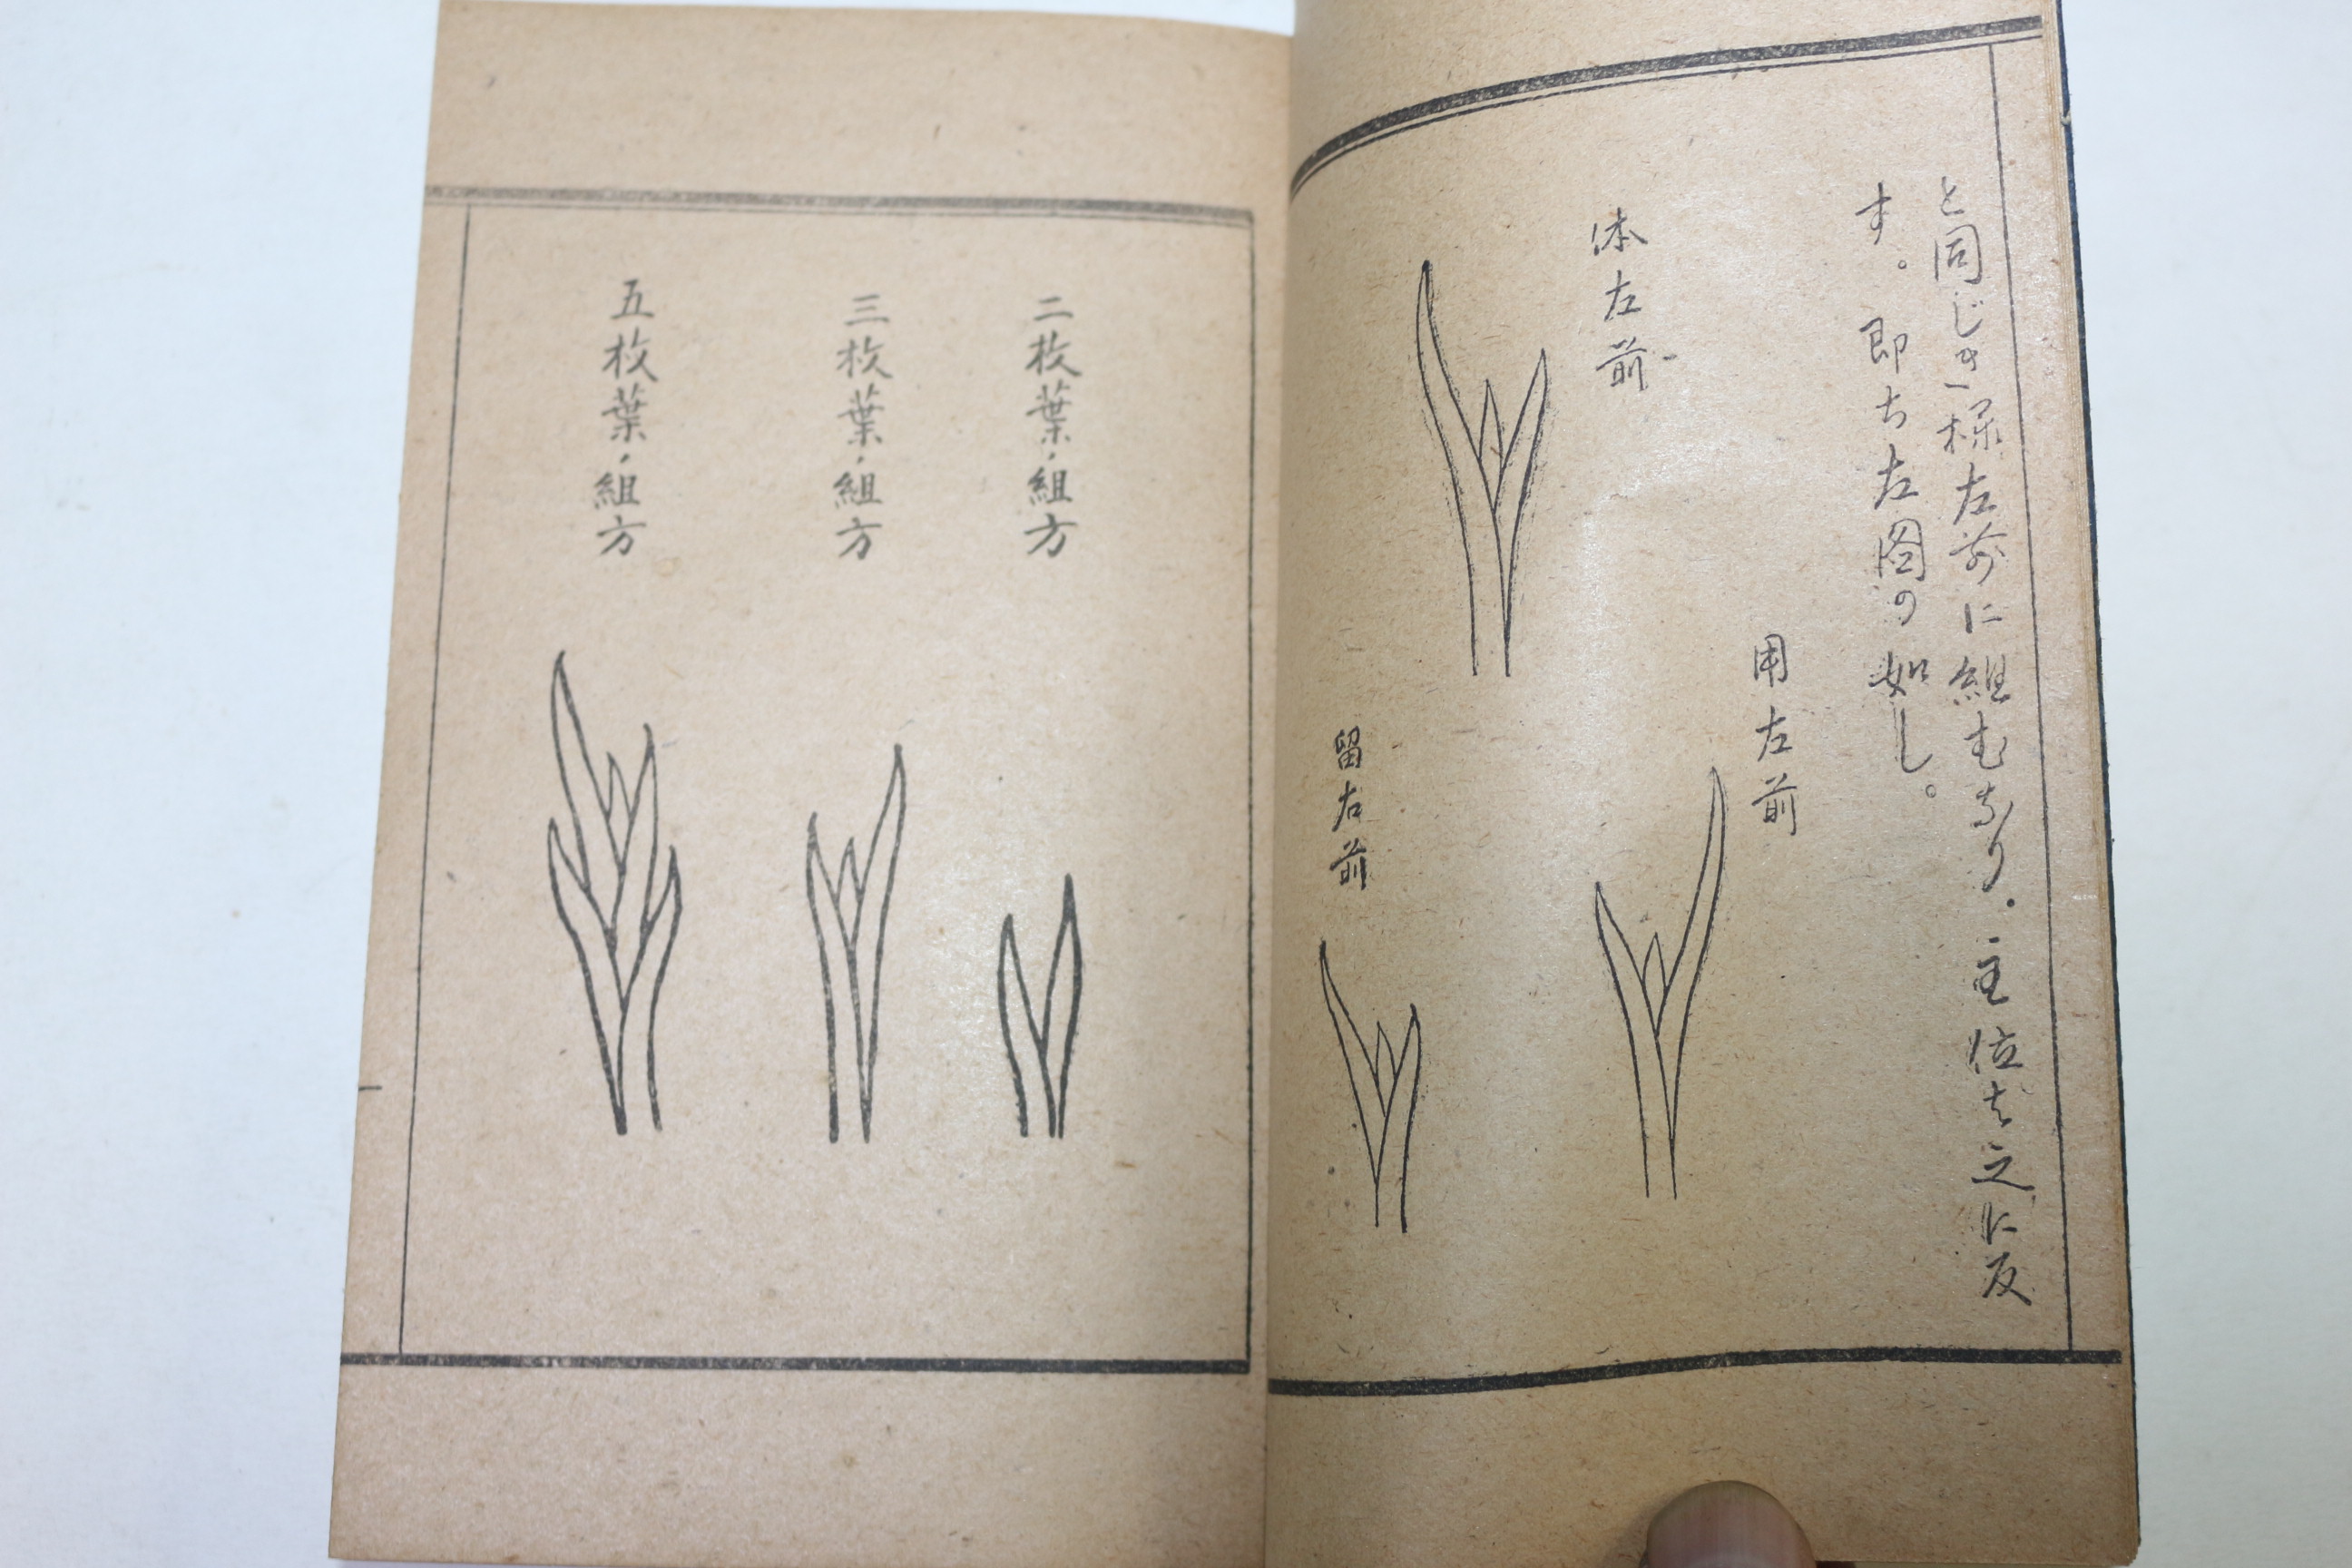 と同じき様左前に組むなり.主位は之に反
す。即ち左図の如し。
用左前
体左前
留右前
二枚葉ノ組方
三枚葉ノ組方
五枚葉ノ組方